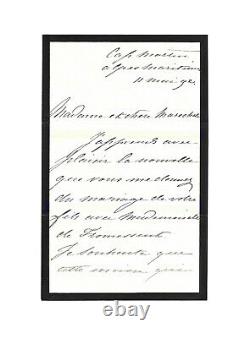 Cap Martin
Alpes Maritimes
11 mai 92
Madame et chère Maréchale
J'apprends avec
plaisir la nouvelle
que vous me donnez
du mariage de votre
fils avec Mademoiselle
de
Je souhaite que
cette union